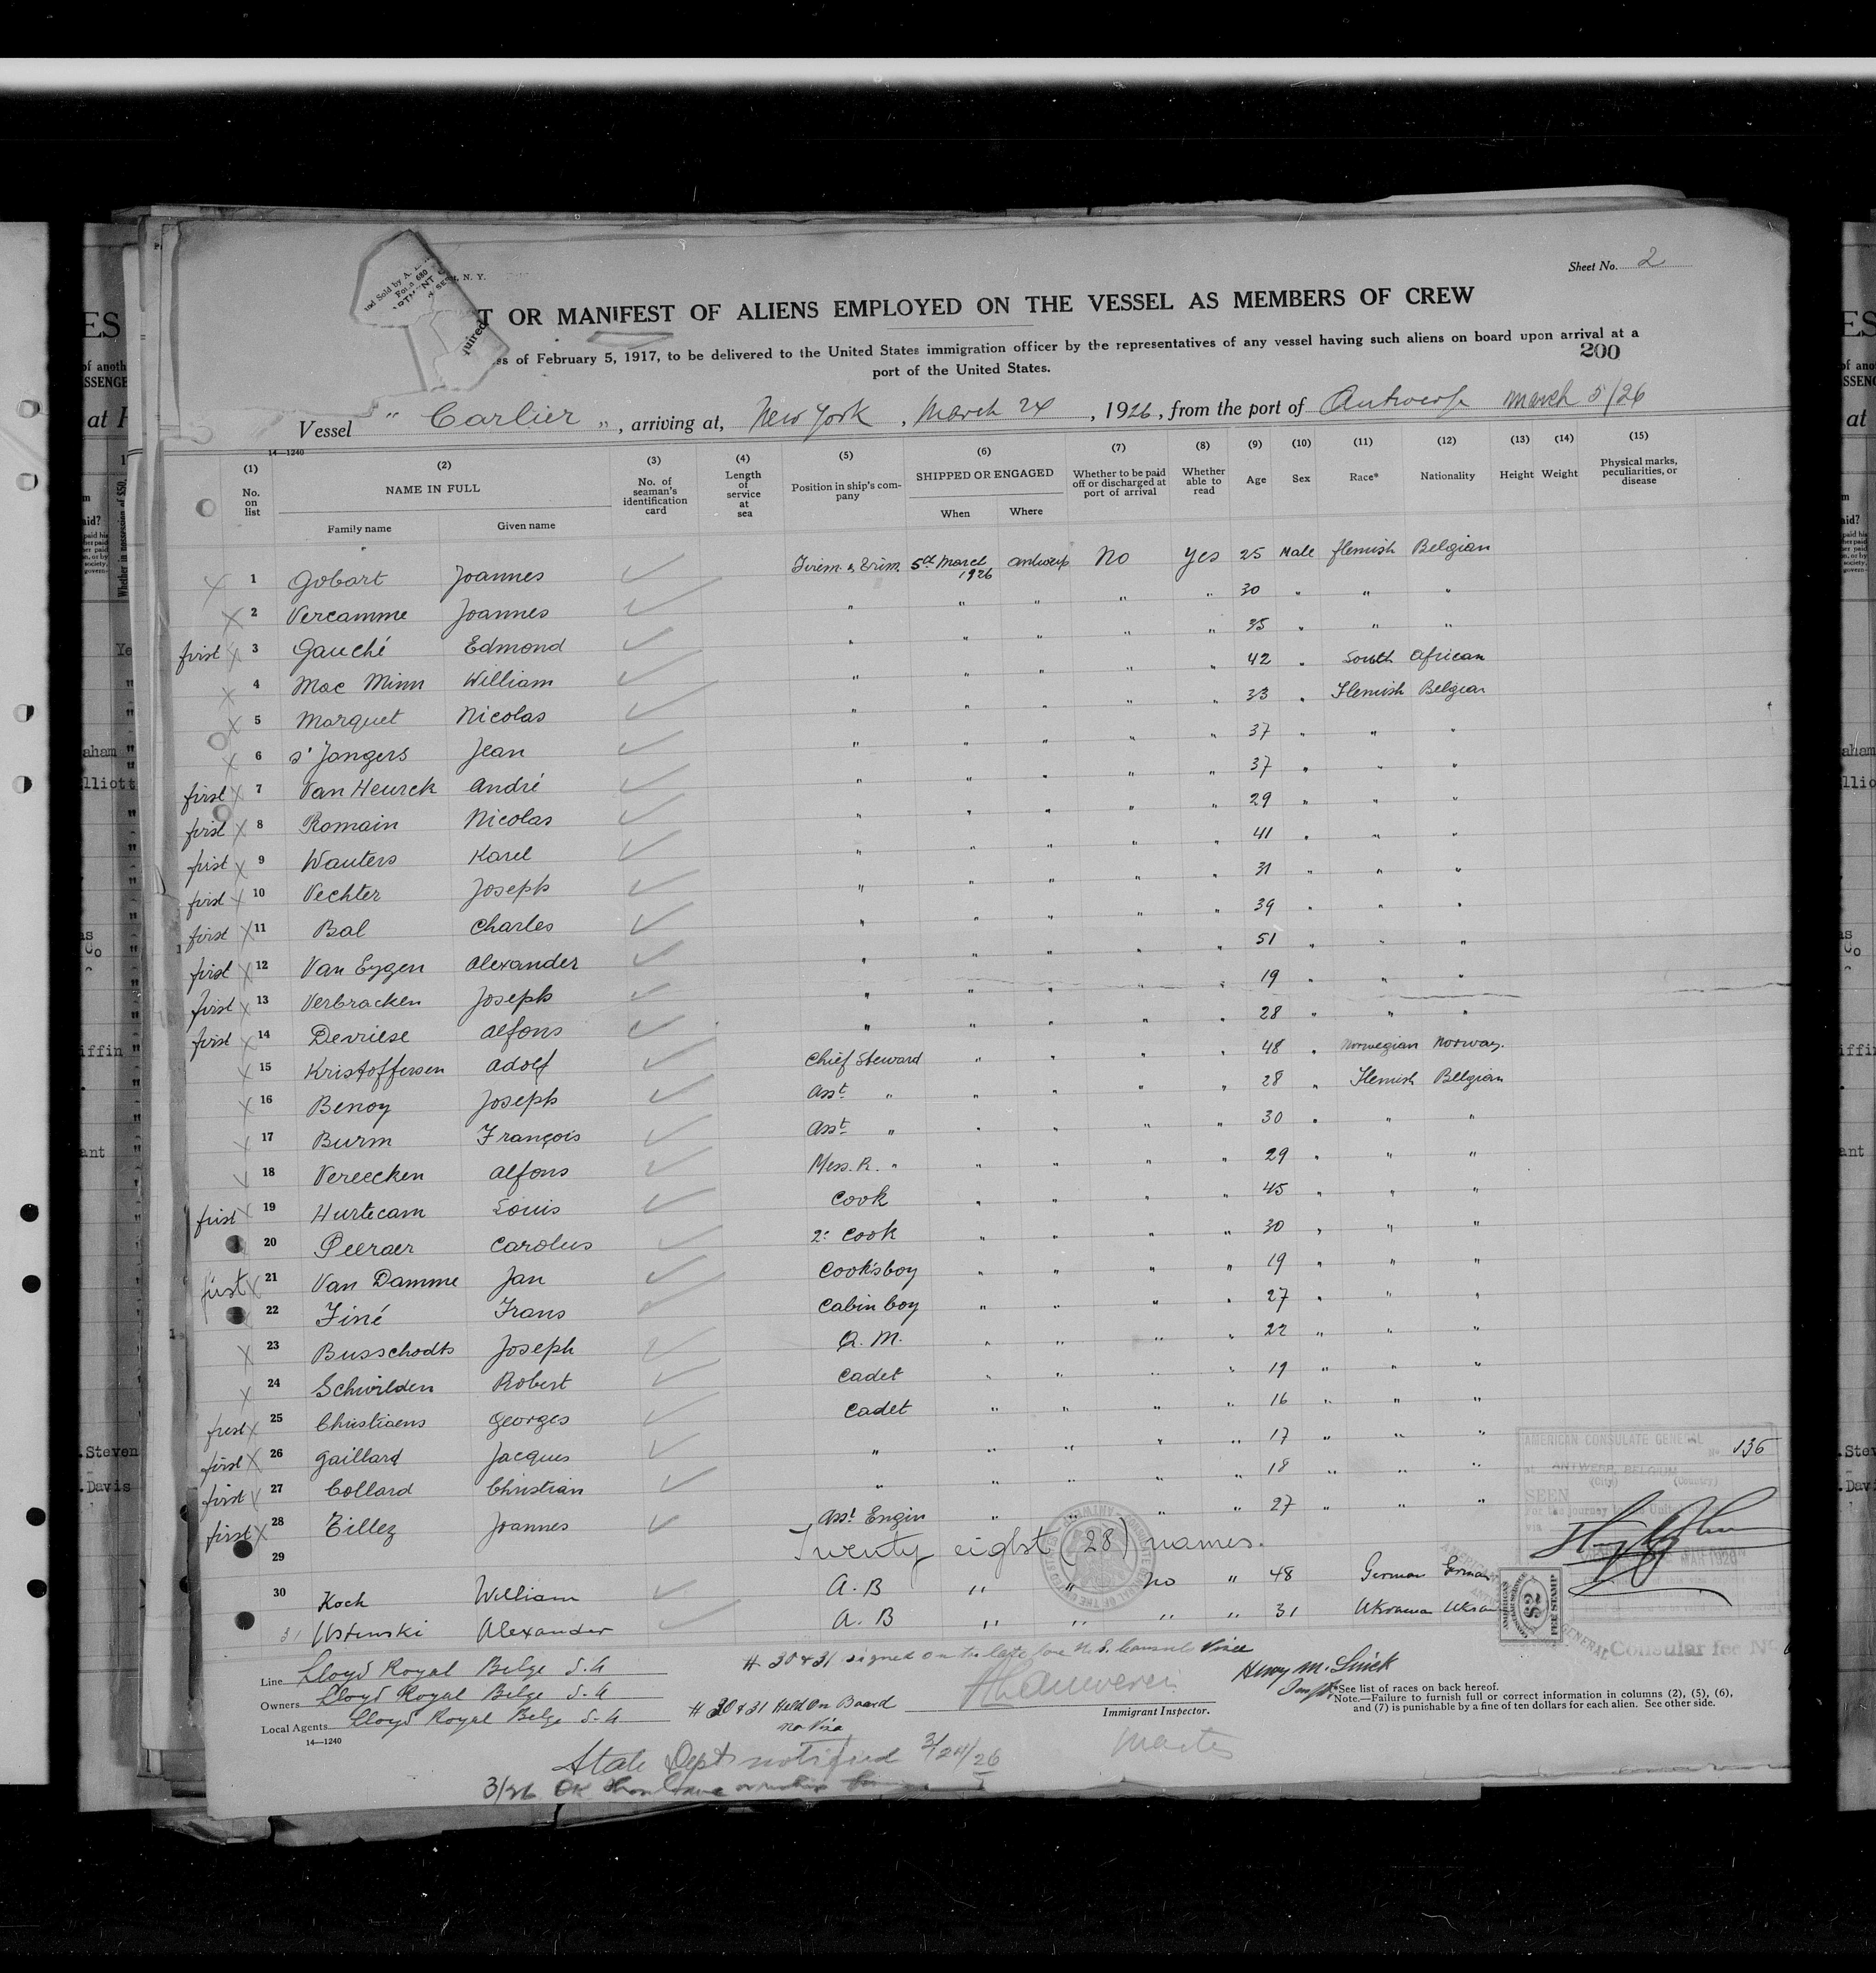 Sheet No. 2
T OR MANIFEST OF ALIENS EMPLOYED ON THE VESSEL AS MEMBERS OF CREW
ss of February 5, 1917, to be delivered to the United States immigration officer by the representatives of any vessel having such aliens on board upon arrival at a
port of the United States.
200
Vessel " Carlier ", arriving at, New York, March 24, 1926, from the port of Antwerp March 5/26
14—1240
(1) No. on list (2) NAME IN FULL Family name Given name (3) No. of seaman's identification card (4) Length of service at sea (5) Position in ship's company (6) SHIPPED OR ENGAGED When Where (7) Whether to be paid off or discharged at port of arrival (8) Whether able to read (9) Age (10) Sex (11) Race* (12) Nationality (13) Height (14) Weight (15) Physical marks, peculiarities, or disease
x 1 Gobart Joannes ✓ Firem. & Trim. 5th March 1926 Antwerp No Yes 25 Male flemish Belgian
x 2 Vercamme Joannes ✓ " " " " " 30 " " "
first x 3 Gauché Edmond ✓ " " " " " 35 " " "
x 4 Mac Minn William ✓ " " " " " 42 " South African
x 5 Marquet Nicolas ✓ " " " " " 33 " Flemish Belgian
x 6 s' Jongers Jean ✓ " " " " " 37 " " "
first x 7 Van Heurck André ✓ " " " " " 37 " " "
first x 8 Romain Nicolas ✓ " " " " " 29 " " "
first x 9 Wauters Karel ✓ " " " " " 41 " " "
first x 10 Vechter Joseph ✓ " " " " " 31 " " "
first x 11 Bal Charles ✓ " " " " " 39 " " "
first x 12 Van Eygen Alexander ✓ " " " " " 51 " " "
first x 13 Verbracken Joseph ✓ " " " " " 19 " " "
first x 14 Devriese Alfons ✓ " " " " " 28 " " "
x 15 Kristoffersen Adolf ✓ Chief Steward " " " " 48 " Norwegian Norway.
x 16 Benoy Joseph ✓ Asst " " " " " 28 " Flemish Belgian
x 17 Burm François ✓ Asst " " " " " 30 " " "
x 18 Vereecken Alfons ✓ Mess. R. " " " " " 29 " " "
first x 19 Hurtecam Louis ✓ Cook " " " " 45 " " "
20 Peeraer Carolus ✓ 2: Cook " " " " 30 " " "
first x 21 Van Damme Jan ✓ Cook's boy " " " " 19 " " "
22 Finé Frans ✓ Cabin boy " " " " 27 " " "
x 23 Busschodts Joseph ✓ Q. M. " " " " 22 " " "
x 24 Schwilden Robert ✓ Cadet " " " " 19 " " "
first x 25 Christiaens Georges ✓ Cadet " " " " 16 " " "
first x 26 Gaillard Jacques ✓ " " " " " 17 " " "
first x 27 Collard Christian ✓ " " " " " 18 " " "
first x 28 Tillez Joannes ✓ Asst Engin " " " " 27 " " "
29 Twenty eight (28) names.
30 Koch William ✓ A. B " " No " 48 German German
31 Ustenski Alexander ✓ A. B " " " " 31
AMERICAN CONSULATE GENERAL No. 136
at ANTWERP, BELGIUM
(City) (Country)
SEEN
For the journey to the United
via
AMERICAN $2 FEE STAMP
Consular fee No
# 30 & 31 signed on too late for U.S. Consuls Visee
Line Lloyd Royal Belge S.A
Owners Lloyd Royal Belge S.A
Local Agents Lloyd Royal Belge S.A
14—1240
# 30 & 31 Held On Board
no Visa
Immigrant Inspector.
*See list of races on back hereof.
Note.—Failure to furnish full or correct information in columns (2), (5), (6),
and (7) is punishable by a fine of ten dollars for each alien. See other side.
State Dept notified 3/24/26
3/26 OK